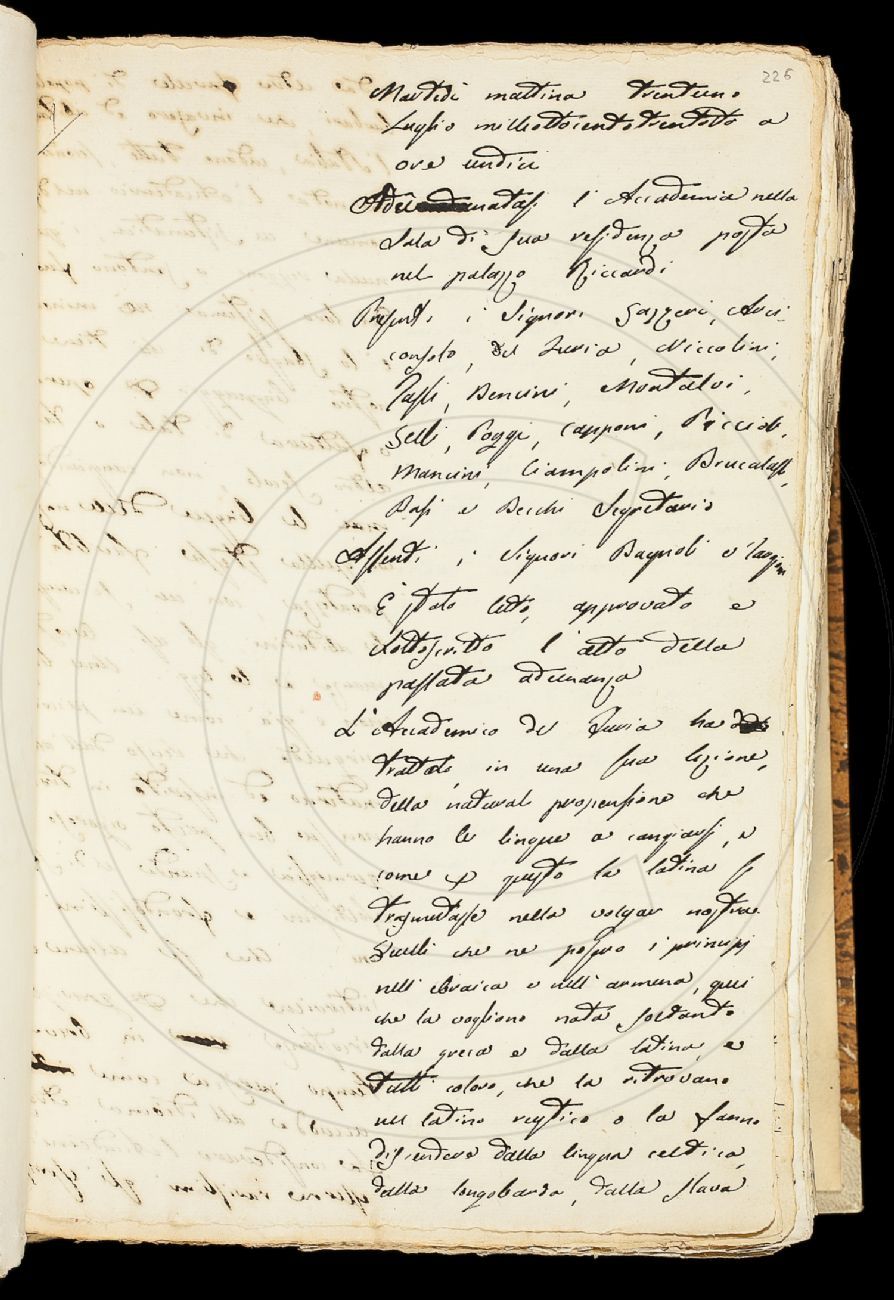 226
Martedì mattina trentuno
Luglio milleottocentotrentotto a
ore undici
Adunatasi l'Accademia nella
Sala di sua residenza posta
nel palazzo Riccardi
Presenti i Signori Gazzeri, Arci-
consolo, Del Furia, Niccolini,
Tassi, Bencini, Montalvi,
Gelli, Poggi, Capponi, Piccioli,
Mancini, Ciampolini, Brucalassi,
Basi e Becchi Segretario
Assenti i Signori Bagnoli e
È stato letto, approvato e
sottoscritto l'atto della
passata adunanza
L'Accademico Del Furia ha
trattato, in una sua lezione,
della naturale propensione che
hanno le lingue a cangiarsi, e
come p questo la latina si
trasmutasse nella volgar nostra.
Quelli che ne posero i principj
nell'ebraica e nell'armena, quei
che la vogliono nata soltanto
dalla greca e dalla latina, e
tutti coloro, che la ritrovano
nel latino rustico o la fanno
discendere dalla lingua celtica,
dalla longobarda, dalla slava